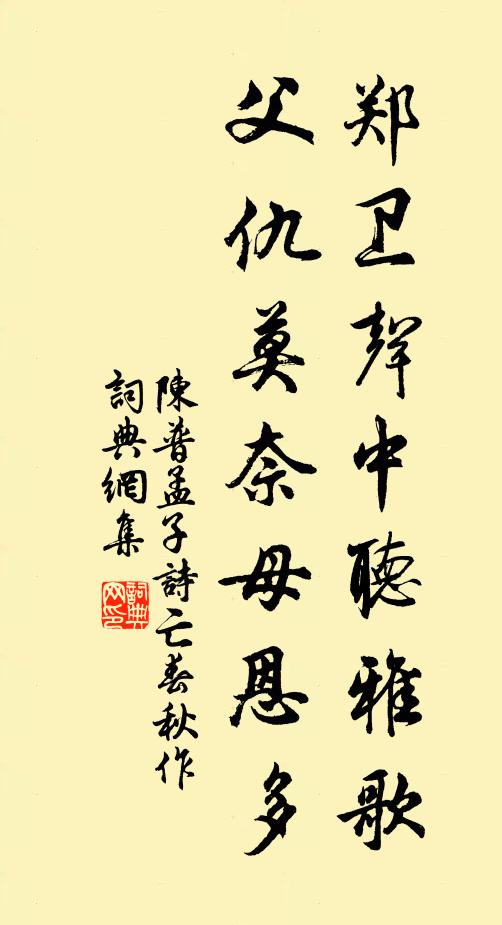 郑卫聲中聴雅歌
父仇莫奈母恩多
陳普孟子詩亡春秋作
詞典網集
詞典网印